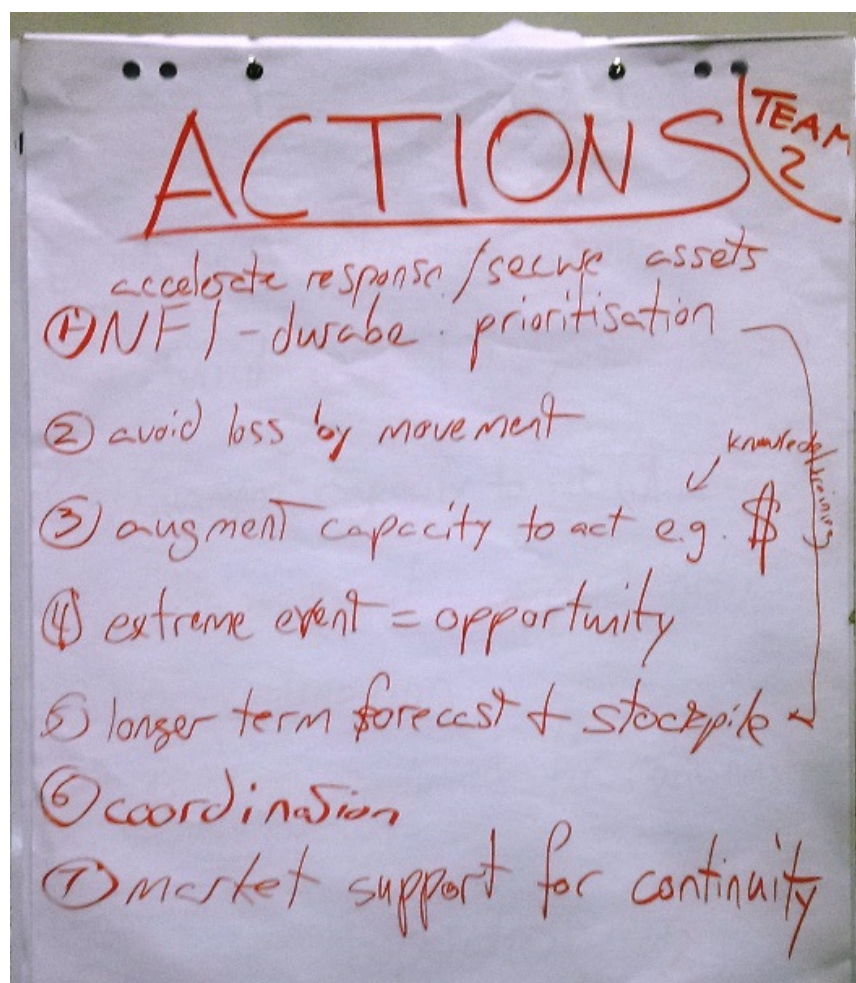 ACTIONS
TEAM
2
accelerate response / secure assets
① NFI - durabe . prioritisation
② avoid loss by movement
knowledge/training
③ augment capacity to act e.g. $
④ extreme event = opportunity
⑤ longer term forecast + stockpile
⑥ coordination
⑦ market support for continuity